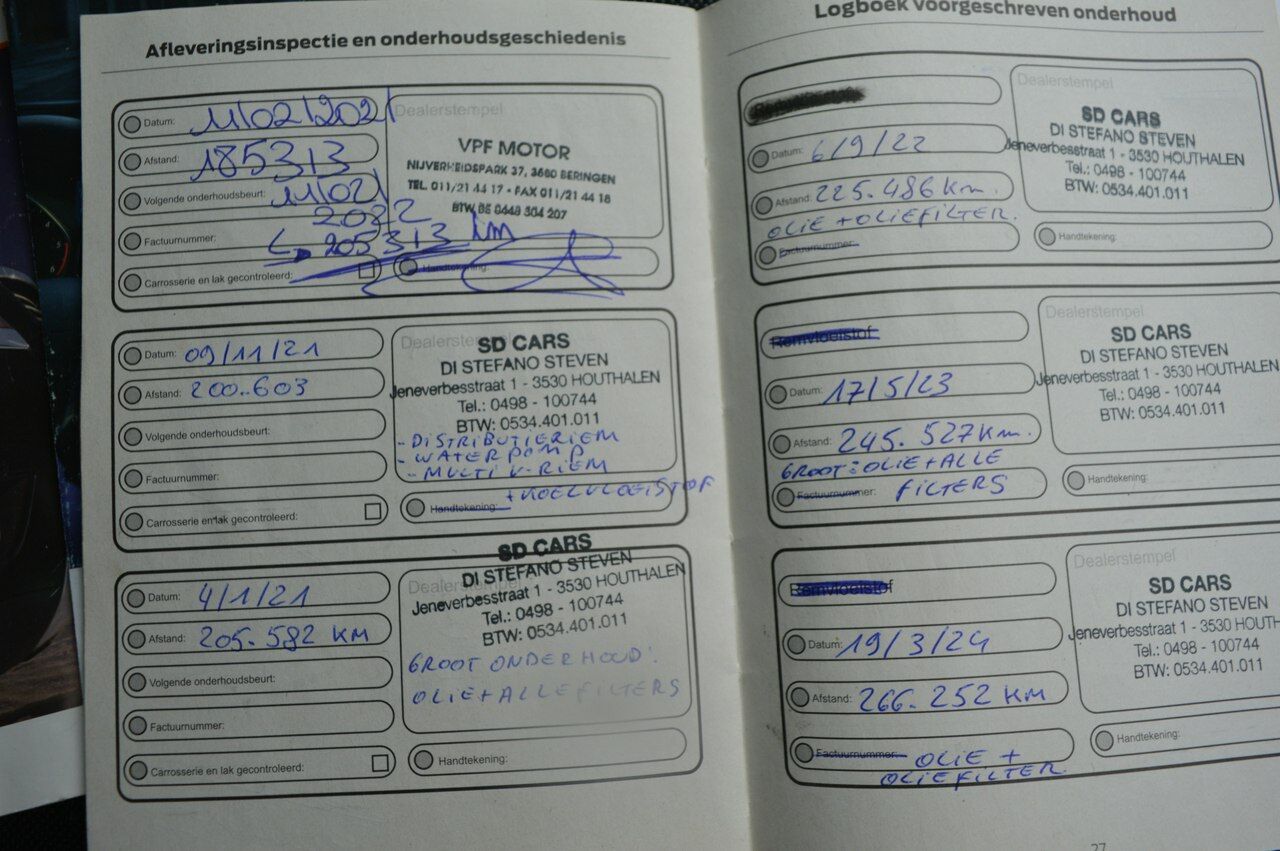 Afleveringsinspectie en onderhoudsgeschiedenis
Datum: 11/02/2021
Afstand: 185313
Volgende onderhoudsbeurt: 11/02/
2022
Factuurnummer: 205313 km
Carrosserie en lak gecontroleerd:
Dealerstempel
VPF MOTOR
NIJVERHEIDSPARK 37, 3580 BERINGEN
TEL. 011/21 44 17 - FAX 011/21 44 18
BTW BE 0448 304 207
Handtekening:
Datum: 09/11/21
Afstand: 200.603
Volgende onderhoudsbeurt:
Factuurnummer:
Carrosserie en lak gecontroleerd:
Dealerstempel
SD CARS
DI STEFANO STEVEN
Jeneverbesstraat 1 - 3530 HOUTHALEN
Tel.: 0498 - 100744
BTW: 0534.401.011
- DISTRIBUTIERIEM
- WATERPOMP
- MULTI V-RIEM
+ KOELVLOEISTOF
Handtekening:
Datum: 4/1/21
Afstand: 205.582 KM
Volgende onderhoudsbeurt:
Factuurnummer:
Carrosserie en lak gecontroleerd:
Dealerstempel
SD CARS
DI STEFANO STEVEN
Jeneverbesstraat 1 - 3530 HOUTHALEN
Tel.: 0498 - 100744
BTW: 0534.401.011
GROOT ONDERHOUD:
OLIE + ALLE FILTERS
Handtekening:
Logboek voorgeschreven onderhoud
Datum: 6/9/22
Afstand: 225.486 Km.
OLIE + OLIEFILTER.
Factuurnummer:
Dealerstempel
SD CARS
DI STEFANO STEVEN
Jeneverbesstraat 1 - 3530 HOUTHALEN
Tel.: 0498 - 100744
BTW: 0534.401.011
Handtekening:
Remvloeistof
Datum: 17/5/23
Afstand: 245.527 Km.
GROOT: OLIE + ALLE
Factuurnummer: FILTERS
Dealerstempel
SD CARS
DI STEFANO STEVEN
Jeneverbesstraat 1 - 3530 HOUTHALEN
Tel.: 0498 - 100744
BTW: 0534.401.011
Handtekening:
Remvloeistof
Datum: 19/3/24
Afstand: 266.252 KM
Factuurnummer: OLIE +
OLIEFILTER
Dealerstempel
SD CARS
DI STEFANO STEVEN
Jeneverbesstraat 1 - 3530 HOUTH
Tel.: 0498 - 100744
BTW: 0534.401.011
Handtekening:
27